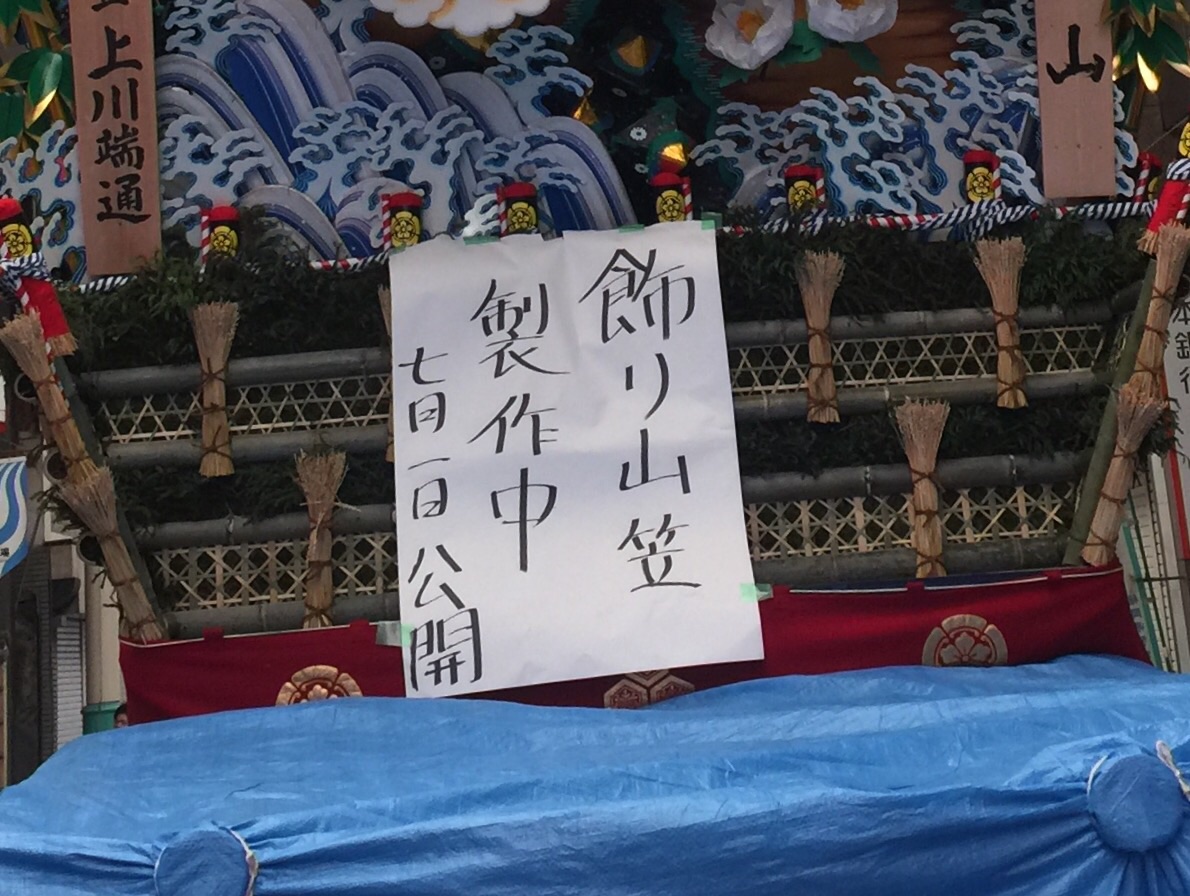 飾り山笠
製作中
七月一日公開
上川端通
山
本銀行